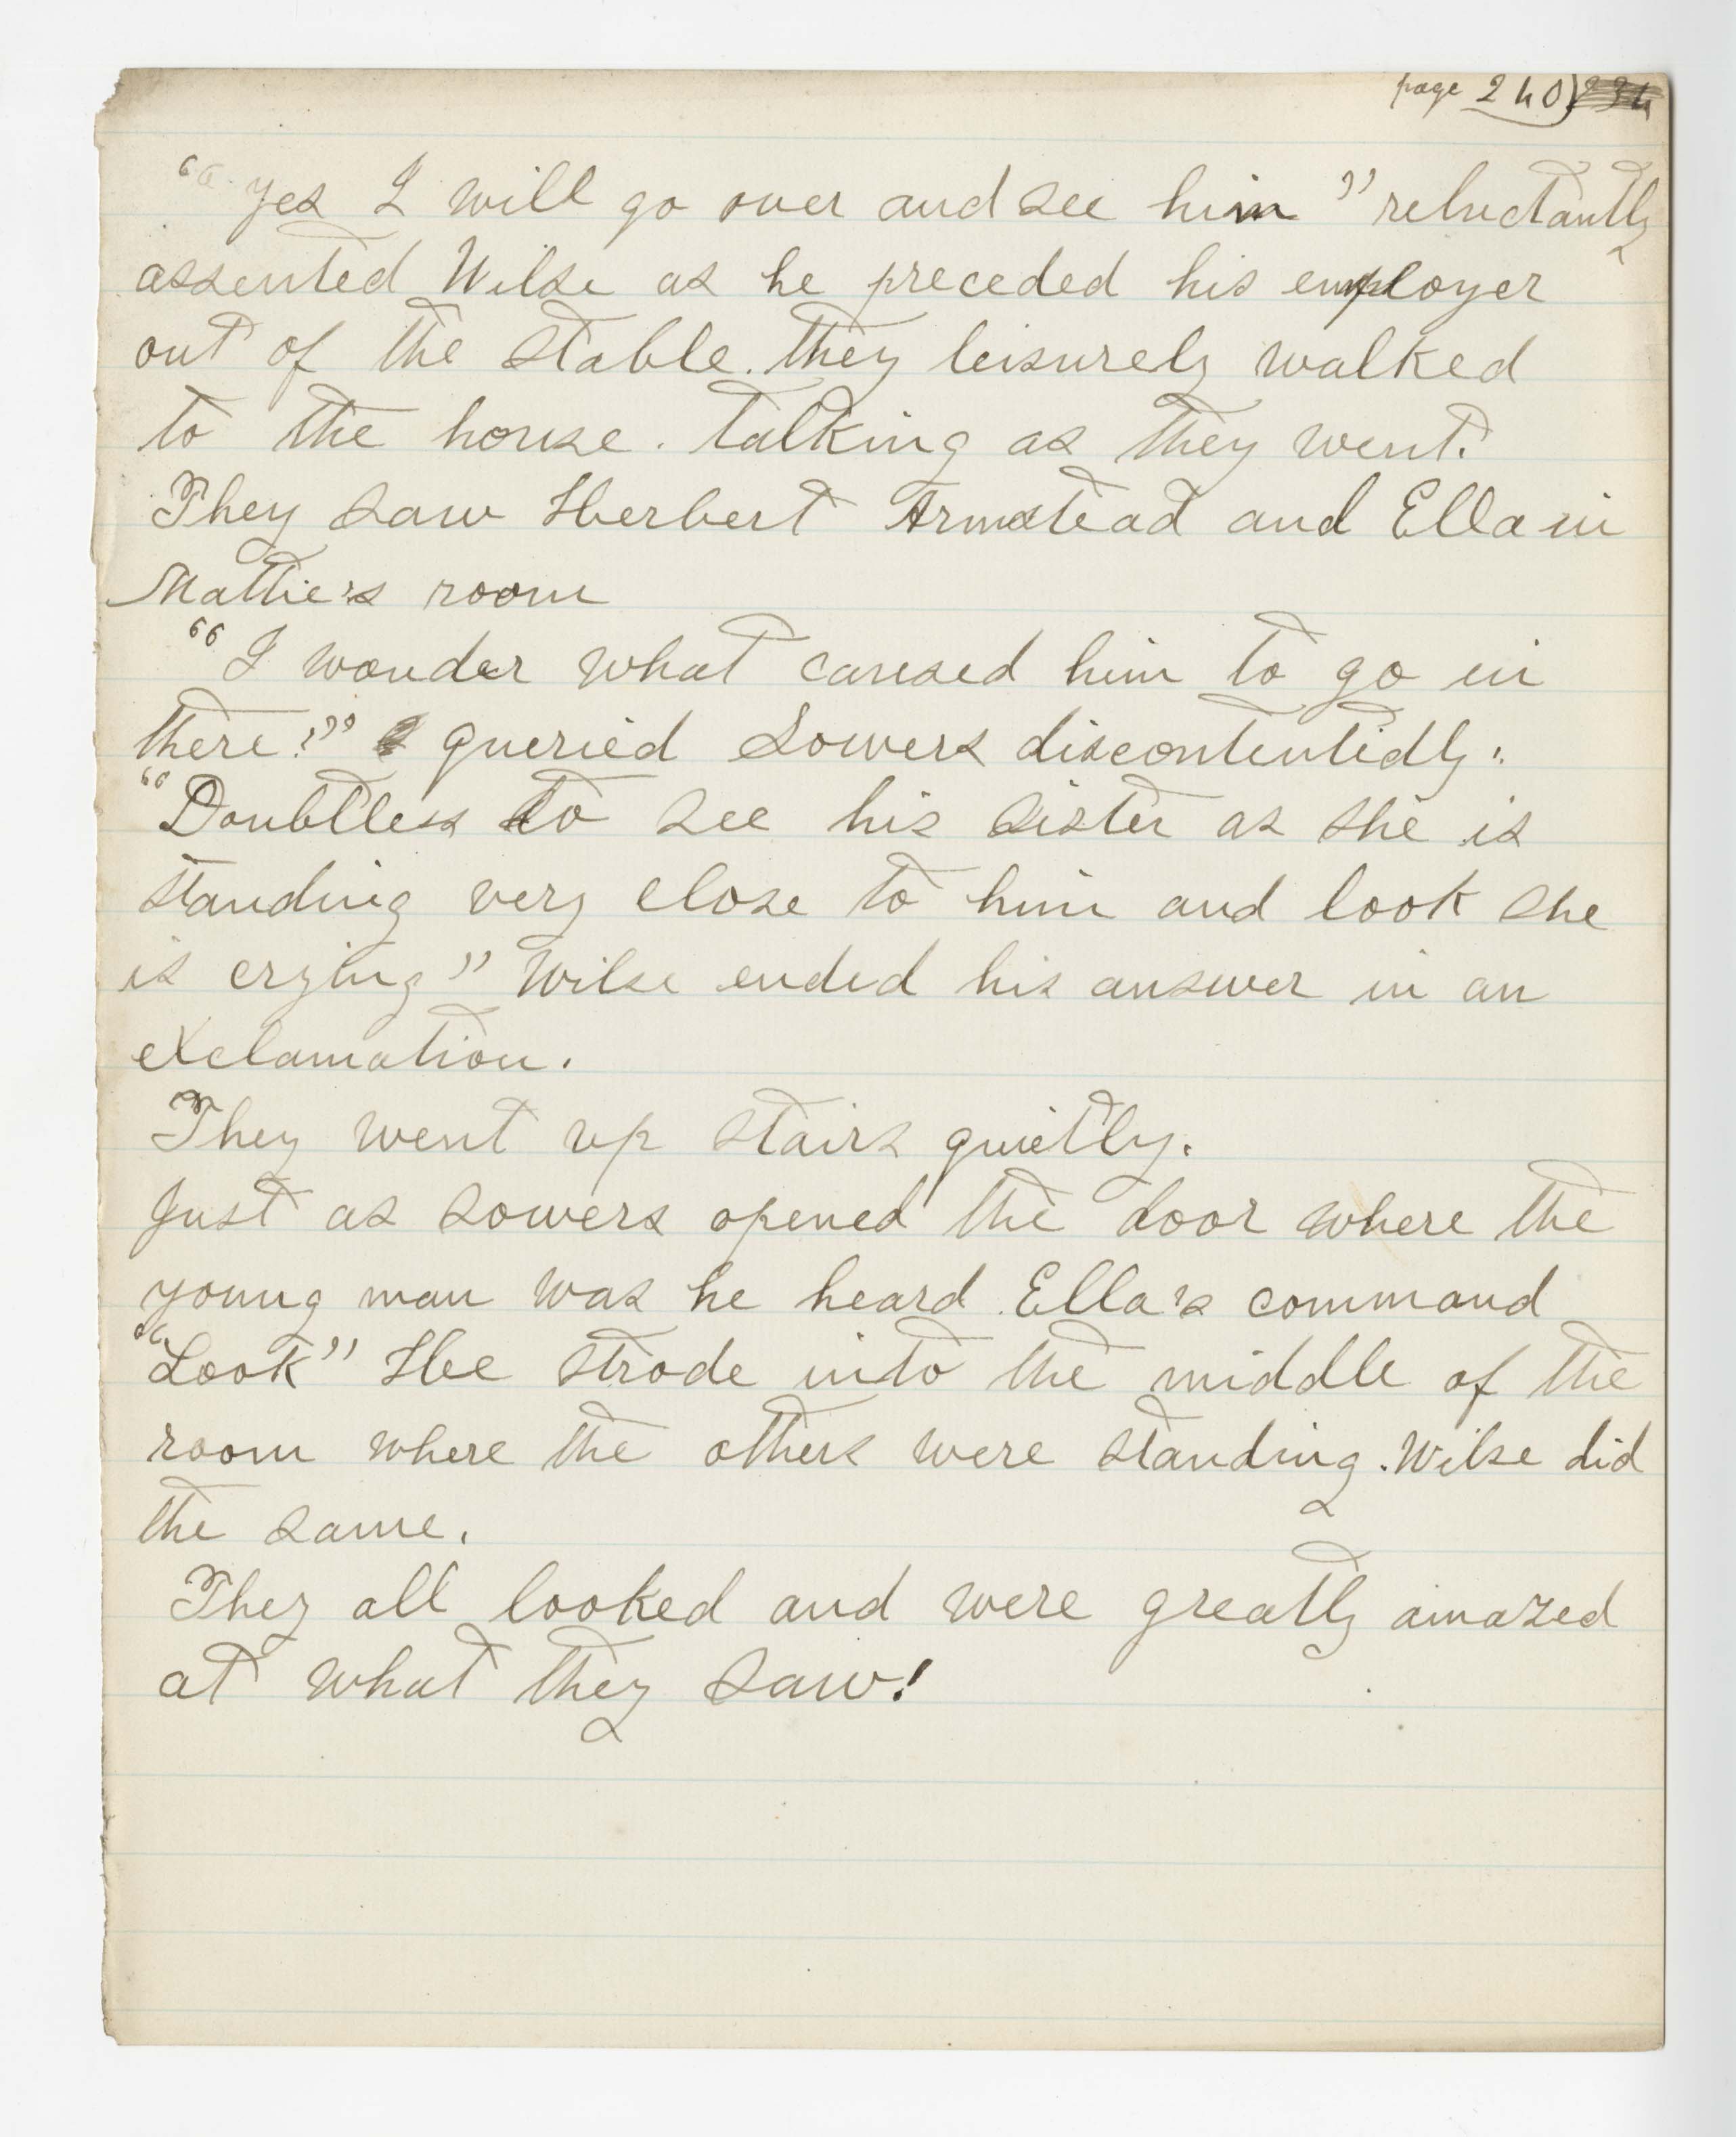 page 240) 234
“Yes I will go over and see him” reluctantly
assented Wilse as he preceded his employer
out of the stable. they leisurely walked
to the house. talking as they went.
They saw Herbert Armstead and Ella in
Mattie's room
“I wonder what caused him to go in
there?” queried Sowers discontentidly.
“Doubtless to see his sister as she is
standing very close to him and look she
is crying” Wilse ended his answer in an
exclamation.
They went up stairs quietly.
Just as Sowers opened the door where the
young man was he heard Ella's command
“Look” He strode into the middle of the
room where the others were standing. Wilse did
the same.
They all looked and were greatly amazed
at what they saw!